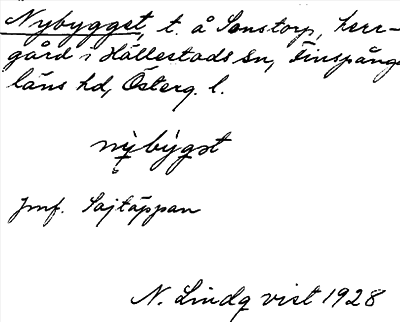 Nybygget, t. å Sonstorp, herr-
gård i Hällestads sn, Finspånga
läns hd, Österg. l.
nỳbýgət
Jmf. Sajtäppan
N. Lindqvist 1928